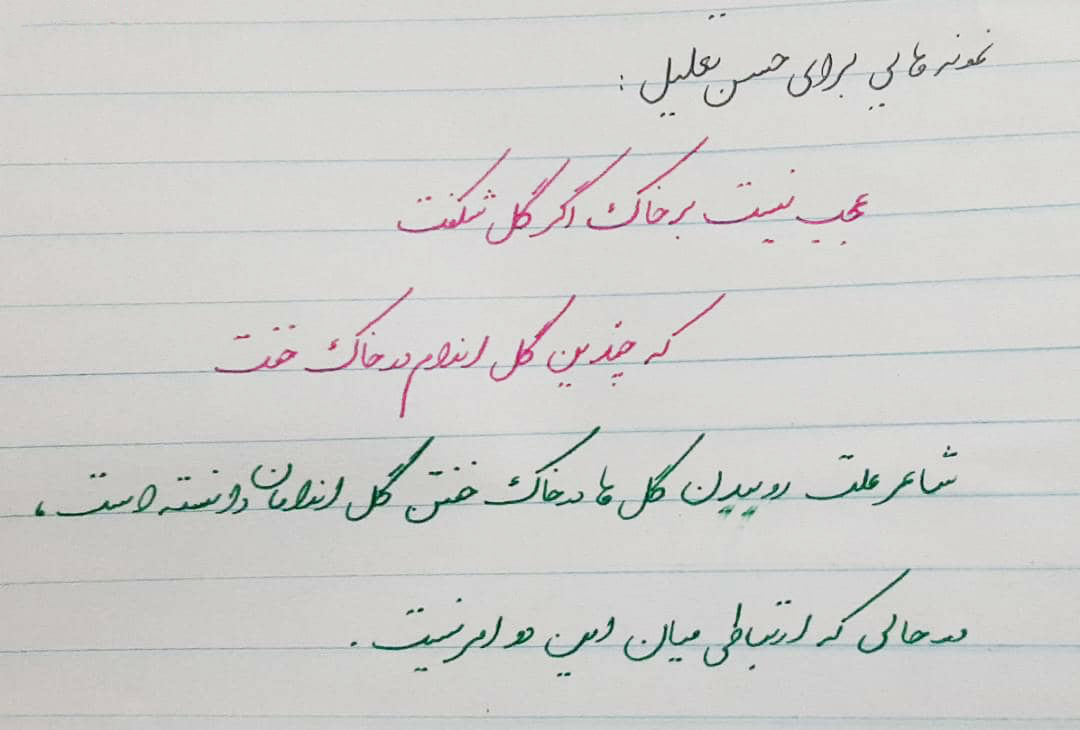 نمونه هایی برای حسن تعلیل :
عجب نیست بر خاک اگر گل شکفت
که چندین گل اندام در خاک خفت
شاعر علت روییدن گل ها در خاک خفتن گل اندامان دانسته است،
در حالی که ارتباطی میان این دو امر نیست .